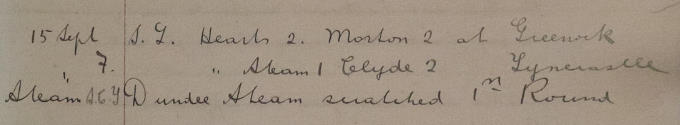 15 Sept S. L. Hearts 2. Morton 2 at Greenock
" 7. " Ateam 1 Clyde 2 Tynecastle
Ateam S.C.Y Dundee Ateam scratched 1st Round